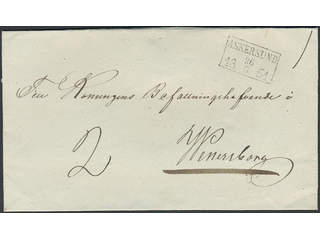 ASKERSUND
Till Konungens Befallningshafvande i
2
Wenersborg